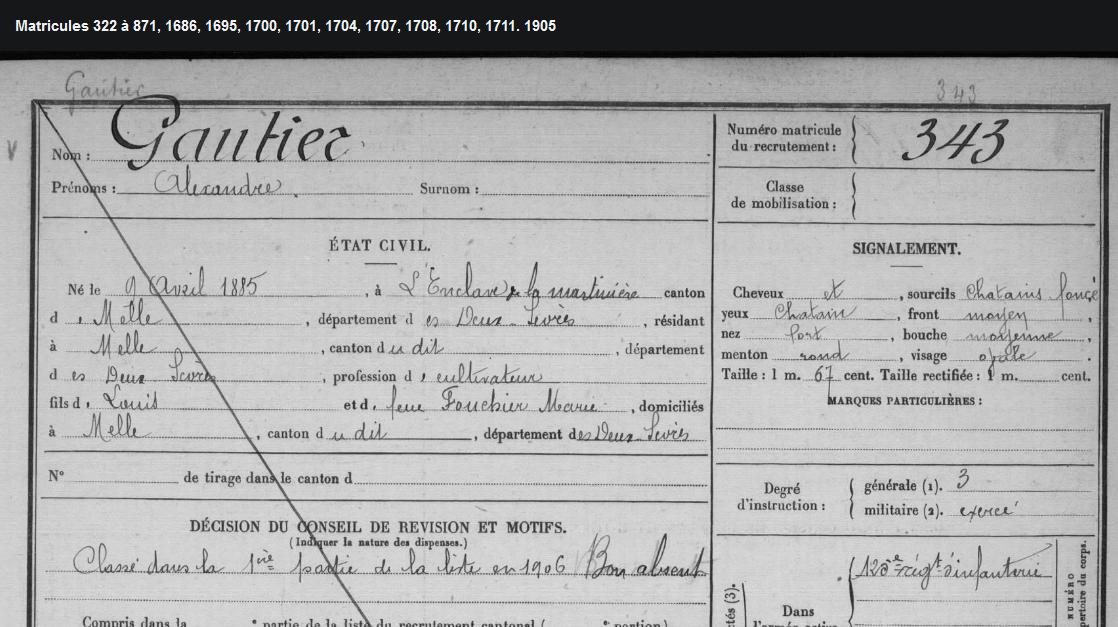 Matricules 322 à 871, 1686, 1695, 1700, 1701, 1704, 1707, 1708, 1710, 1711. 1905
Gautier
343
Nom : Gautier
Prénoms : Alexandre. Surnom :
Numéro matricule du recrutement : 343
Classe de mobilisation :
ÉTAT CIVIL.
Né le 9 Avril 1885, à L'Enclave de la martinière canton
d, Melle, département des Deux-Sevrès, résidant
à Melle, canton du dit, département
des Deux Sevrès, profession d, cultivateur
fils d, Louis et d, feue Fouchier Marie, domiciliés
à Melle, canton du dit, département des Deux-Sevrès
N° de tirage dans le canton d
DÉCISION DU CONSEIL DE REVISION ET MOTIFS.
(Indiquer la nature des dispenses.)
Classé dans la 1ère partie de la liste en 1906 Bon absent
Compris dans la e partie de la liste du recrutement cantonal ( e portion)
SIGNALEMENT.
Cheveux et, sourcils Chatains foncé
yeux Chatain, front moyen,
nez fort, bouche moyenne,
menton rond, visage ovale.
Taille : 1 m. 67 cent. Taille rectifiée : 1 m. cent.
MARQUES PARTICULIÈRES :
Degré d'instruction :
générale (1). 3
militaire (2). exercé
125e régt d'infanterie
Dans
l'armée active
NUMÉRO
répertoire du corps.